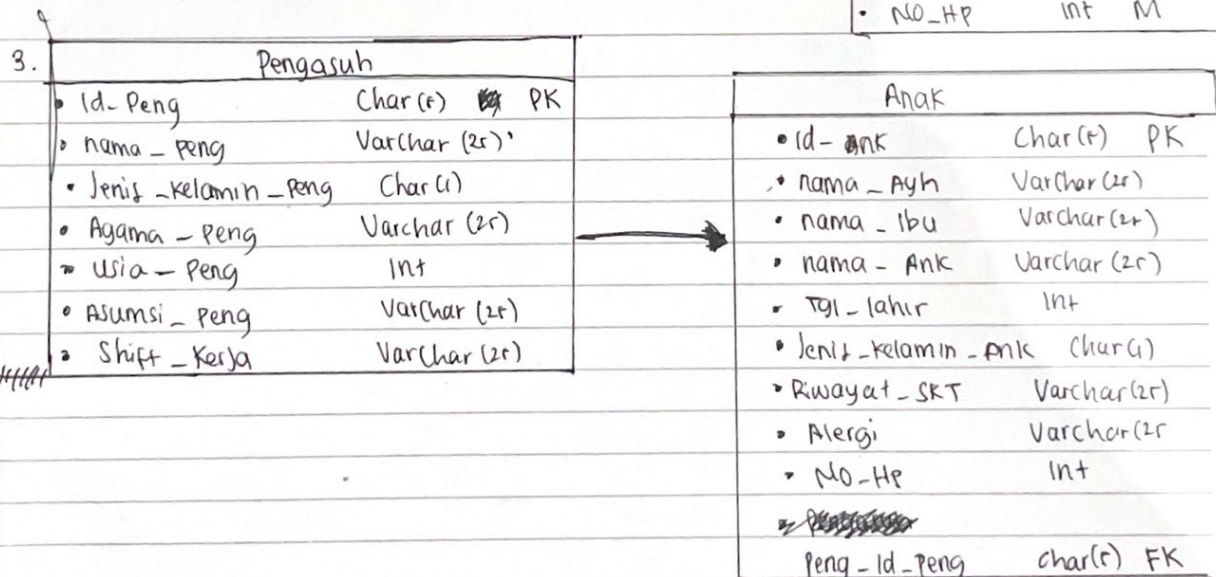 • NO_HP Int M
3.
Pengasuh
• Id_Peng Char(5) PK
• nama_peng Varchar (25)
• Jenis_Kelamin_Peng Char(1)
• Agama_Peng Varchar (25)
• Usia_Peng Int
• Asumsi_Peng Varchar (25)
• Shift_Kerja Varchar (25)
Anak
• Id_Ank Char(5) PK
• nama_Ayh Varchar (25)
• nama_Ibu Varchar (25)
• nama_Ank Varchar (25)
• Tgl_lahir Int
• Jenis_Kelamin_Ank Char(1)
• Riwayat_SKT Varchar (25)
• Alergi Varchar (25
• NO_HP Int
Peng_Id_Peng char(5) FK